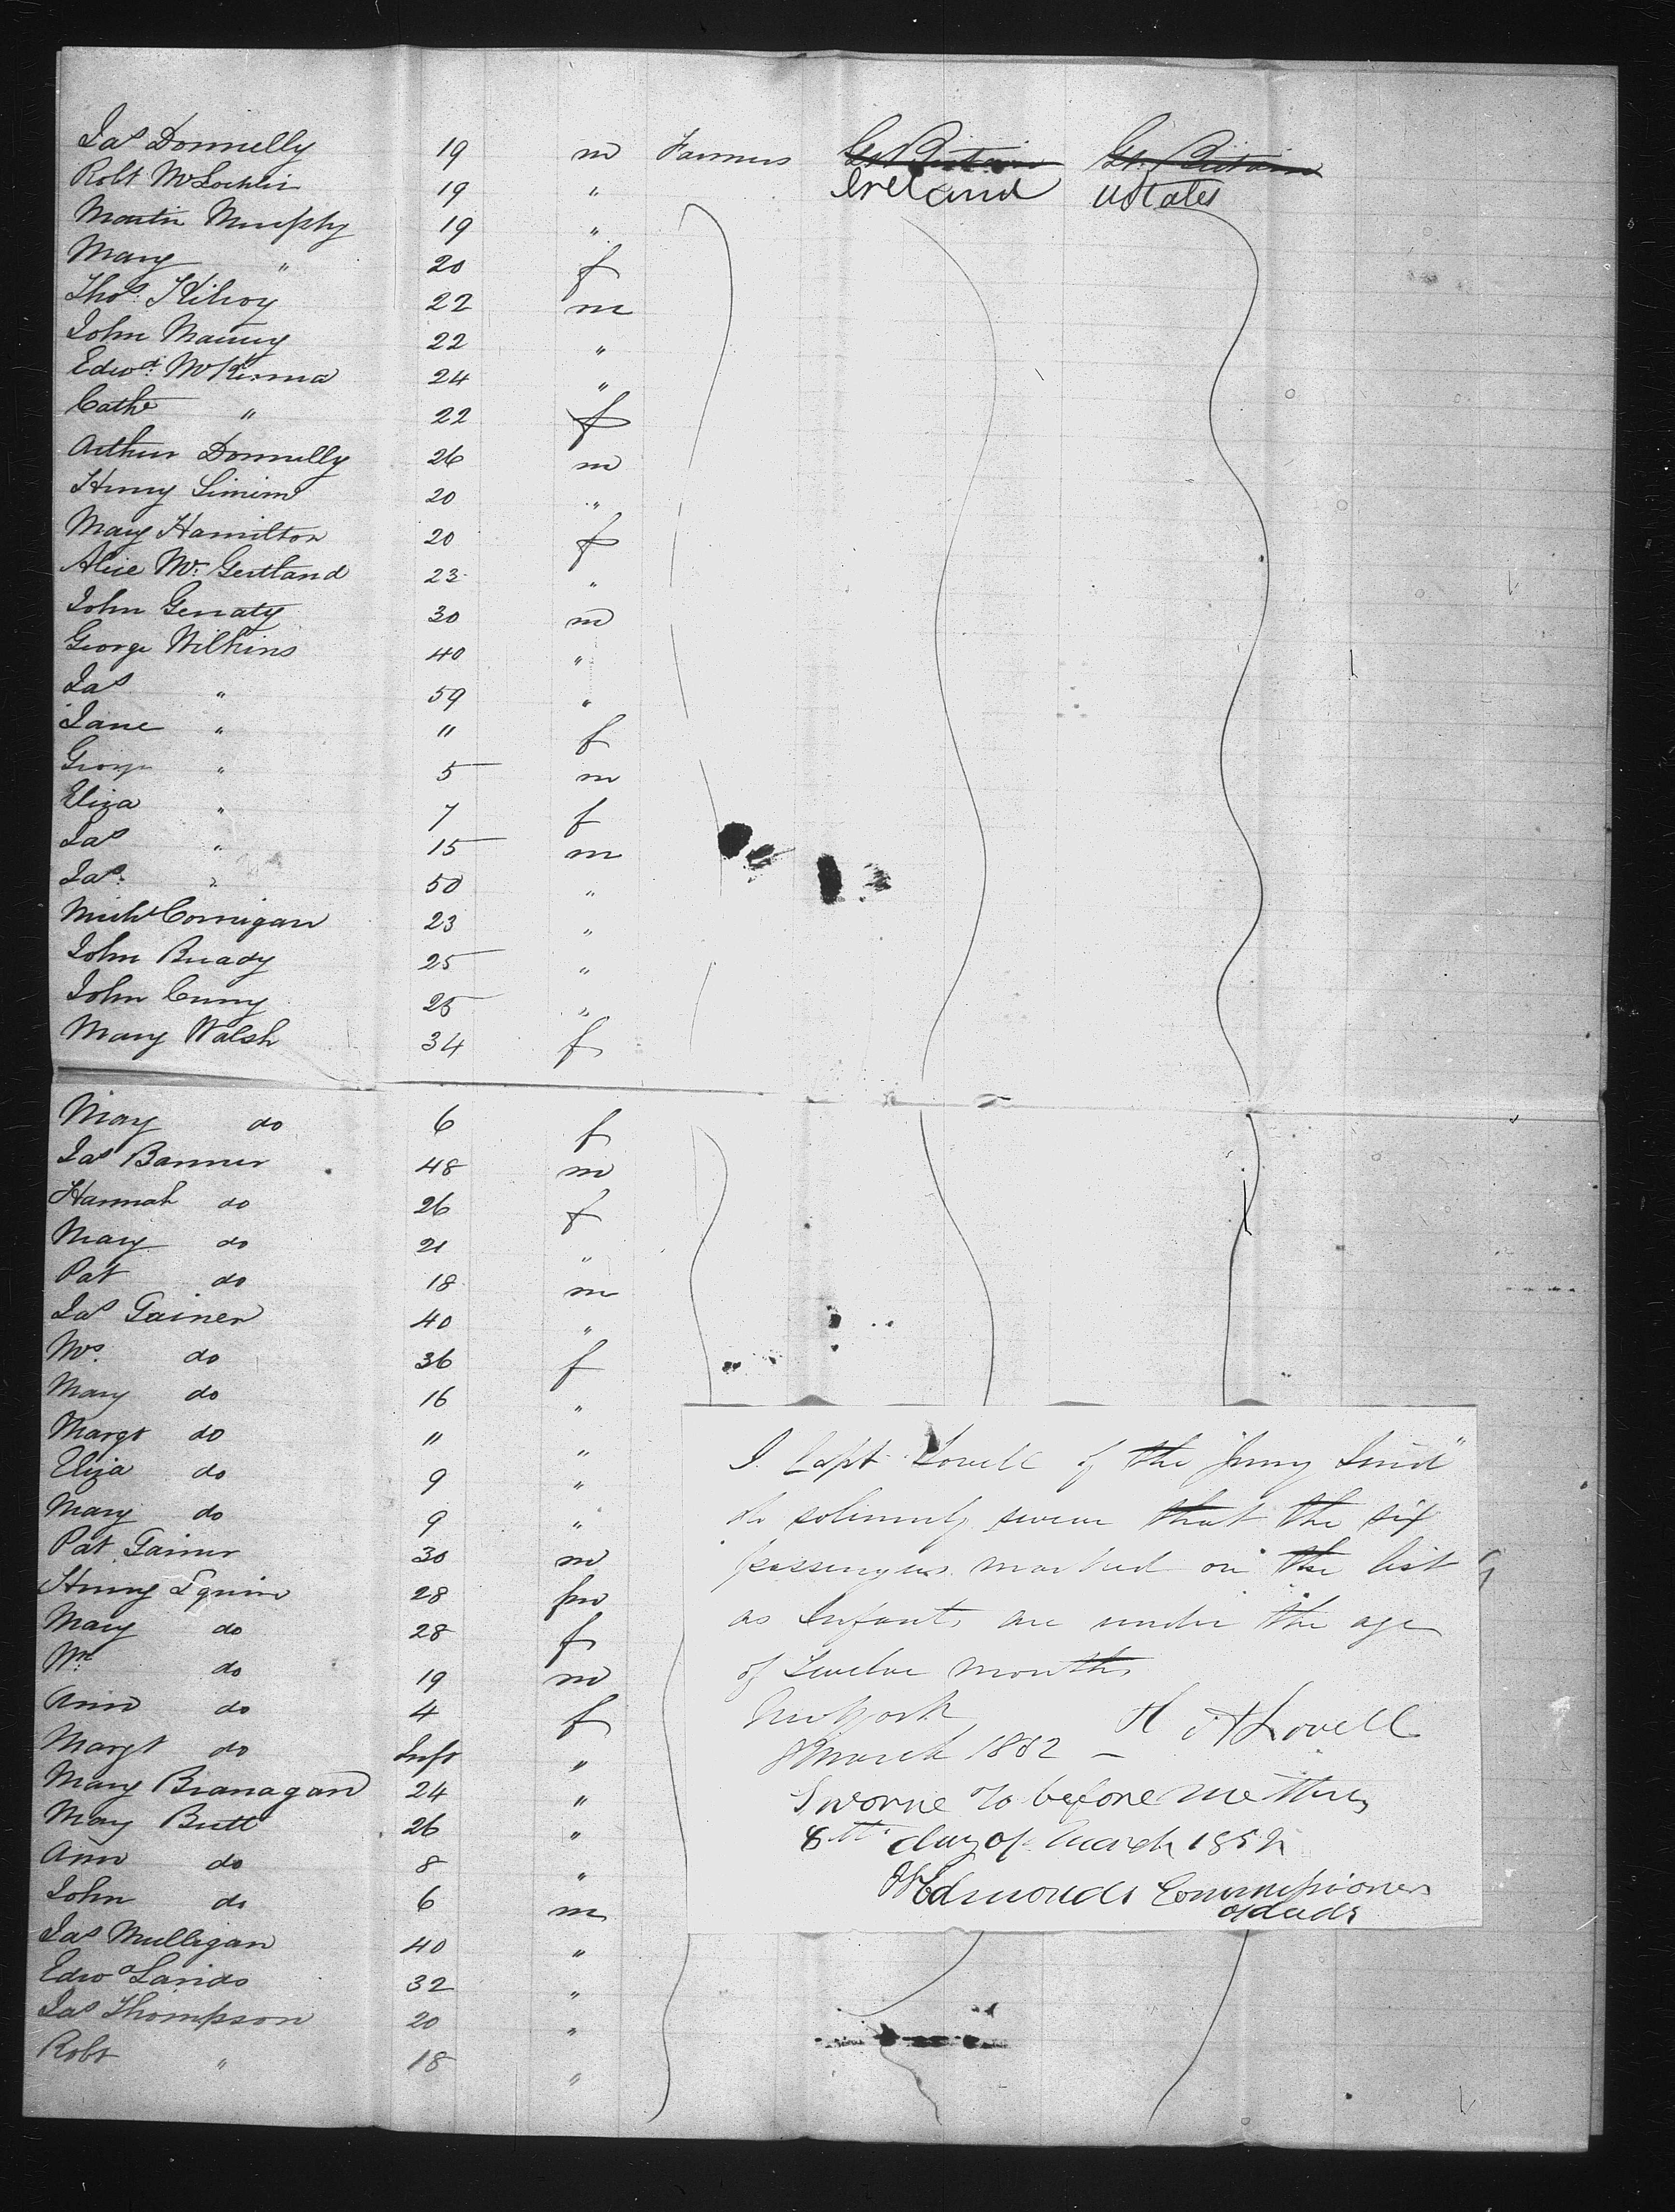 Jas Donnelly 19 m Farmers Gt Britain Gt Britain
Robt McLochlin 19 " Ireland UStates
Martin Murphy 19 "
Mary " 20 f
Thos. Kilroy 22 m
John Manny 22 "
Edwd. McKenna 24 "
Cathe " 22 f
Arthur Donnelly 26 m
Henry 20 "
Mary Hamilton 20 f
Alice Mc. Gertland 23 "
John Gerraty 30 m
George Wilkins 40 "
Jas " 59 "
Jane " " f
George " 5 m
Eliza " 7 f
Jas " 15 m
Jas. " 50 "
Michl Corrigan 23 "
John Bready 25 "
John 25 "
Mary Walsh 34 f
Mary do 6 f
Jas Banner 48 m
Hannah do 26 f
Mary do 21 "
Pat do 18 m
Jas Gainer 40 "
Mrs. do 36 f
Mary do 16 "
Margt do " "
Eliza do 9 "
Mary do 9 "
Pat Gainer 30 m
Henry Squire 28 m
Mary do 28 f
Wm. do 19 m
Ann do 4 f
Margt do Inft "
Mary Branagan 24 "
Mary Butt 26 "
Ann do 8 "
John do 6 m
Jas Mulligan 40 "
Edwd 32 "
Jas Thompson 20 "
Robt " 18 "
I Capt Lovell of the "Jenny Lind"
do solemnly swear that the six
passengers marked on the list
as Infants are under the age
of Twelve months
New York H A Lovell
8 March 1852 –
Sworne to before me this
8th day of March 1852
Edmonds Commissioner
of deeds